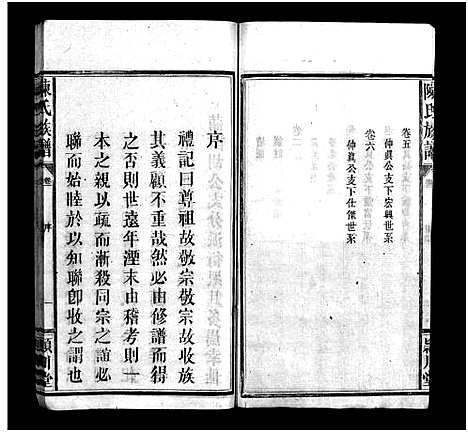 陳氏族譜
卷五
仲眞公支下宏興世系
卷六
仲眞公支下仕傑世系
潁川堂
陳氏族譜
卷一
序
一
潁川堂
序
禮記曰尊祖故敬宗敬宗故收族
其義顧不重哉然必由修譜而明
之否則世遠年湮末由稽考則一
本之親以疏而漸殺同宗之誼必
由而始睦於以知聯卽收之謂也